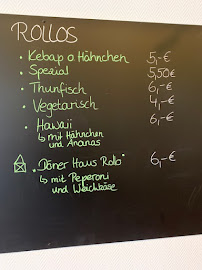 ROLLOS
• Kebap o. Hähnchen 5,-€
• Spezial 5,50€
• Thunfisch 6,-€
• Vegetarisch 4,-€
• Hawaii 6,-€
↳ mit Hähnchen
und Ananas
"Döner Haus Rollo" 6,-€
↳ mit Peperoni
und Weichkäse